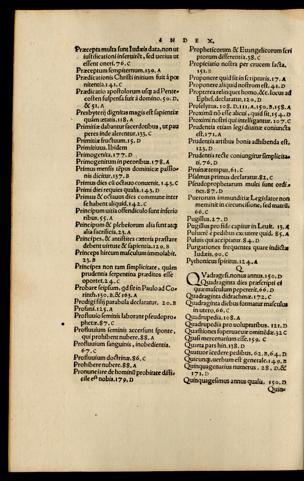 INDEX.
Præcepta multa sunt Iudæis data, non ut
iustificationi inseruirēt, sed uerius ut
essent oneri. 76. C
Præceptum sempiternum. 139. A
Prædicationis Christi initium fuit à pœ
nitentia. 143. C
Prædicatio apostolorum usq; ad Pente-
costen suspensa fuit à domino. 50. D.
& 51. A
Presbyterij dignitas magis est sapientiæ
quàm ætatis. 118. A
Primitiæ dabantur sacerdotibus, ut pau
peres inde alerentur. 133. C
Primitiæ fructuum. 15. D
Primitiuus. Ibidem
Primogenita. 177. D
Primogenitum in peccoribus. 178. A
Primus mensis tēpus dominicæ passio-
nis dicitur. 157. B
Primus dies et octauus conuenit. 143. C
Primi dies requies qualis. 143. C
Primus & octauus dies commune inter
se habent aliquid. 142. C
Principum uitia offendiculo sunt inferio
ribus. 55. A
Principum & plebeiorum alia sunt atq;
alia sacrificia. 23. A
Principes, & antistites cæteris præstare
debent uirtute & sapientia. 129. B
Princeps hircum masculum immolabit.
23. B
Principes non tam simpliciter, quàm
prudentia serpentina præditos esse
oportet. 24. C
Probare seipsum, qd sit in Paulo ad Co-
rinth. 150. B, & 163. A
Prodigi filij parabola declaratur. 20. B
Profani. 125. A
Profluuio seminis laborant pseudopro-
phetæ. 87. C
Profluuium seminis accersunt sponte,
qui prohibent nubere. 88. A
Profluuium sanguinis, inobedientia.
67. C
Profluuium doctrinæ. 86. C
Prohibere nubere. 88. A
Pronuneiure de hominū probitate diffi-
cile est nobis. 179. D
Propheticorum & Euangelicorum scri
ptorum differentia. 38. C
Propiciatio nostra per crucem facta.
151. B
Proponere quid sit in scripturis. 17. A
Proponere aliquid nostrum est. 41. D
Propter unius que bonos, &c. locus ad
Ephes. declaratur. 120. D
Proselytus. 108. D. 111. A. 150. B. 158. A
Proximū nō esse alicui, quid sit. 154. D
Proximi nostri qui intelligantur. 107. C
Prudentia etiam legi diuinæ coniuncta
est. 171. A
Prudentia artibus bonis adhibenda est.
123. D
Prudentia recte coniungitur simplicita-
ti. 76. D
Psalmus primus declaratur. 82. C
Pseudoprophetarum mulci sunt ordi-
nes. 87. D
Puerorum immunditiæ Legislator non
meminit in circuncisione, sed mares.
66. C
Pugillus. 27. D
Pugillus pro fide capitur in Leuit. 15. A
Pulueris quid accipiatur. 84. D
Purgationes frequentes quare indictæ
Iudæis. 90. C
Pythonicus spiritus. 124. A
Q
QVadragesi. nonus annus. 150. D
Quadraginta dies præscripti et
quæ masculum peperit. 66. D
Quadraginta didrachmæ. 172. C
Quadraginta diebus formatur masculus
in utero. 66. C
Quadrupedia. 108. A
Quadrupedia pro uoluptatibus. 121. D
Quasi mercenarium esse. 159. C
Quarta pars hin. 138. D
Quatuor incedere pedibus. 62. B, 64. D
Quicunq; uerbum est generale. 149. D
Quinquagenarius numerus. 28. D. &
171. D
Quinquagesimus annus qualis. 150. D
Quin-